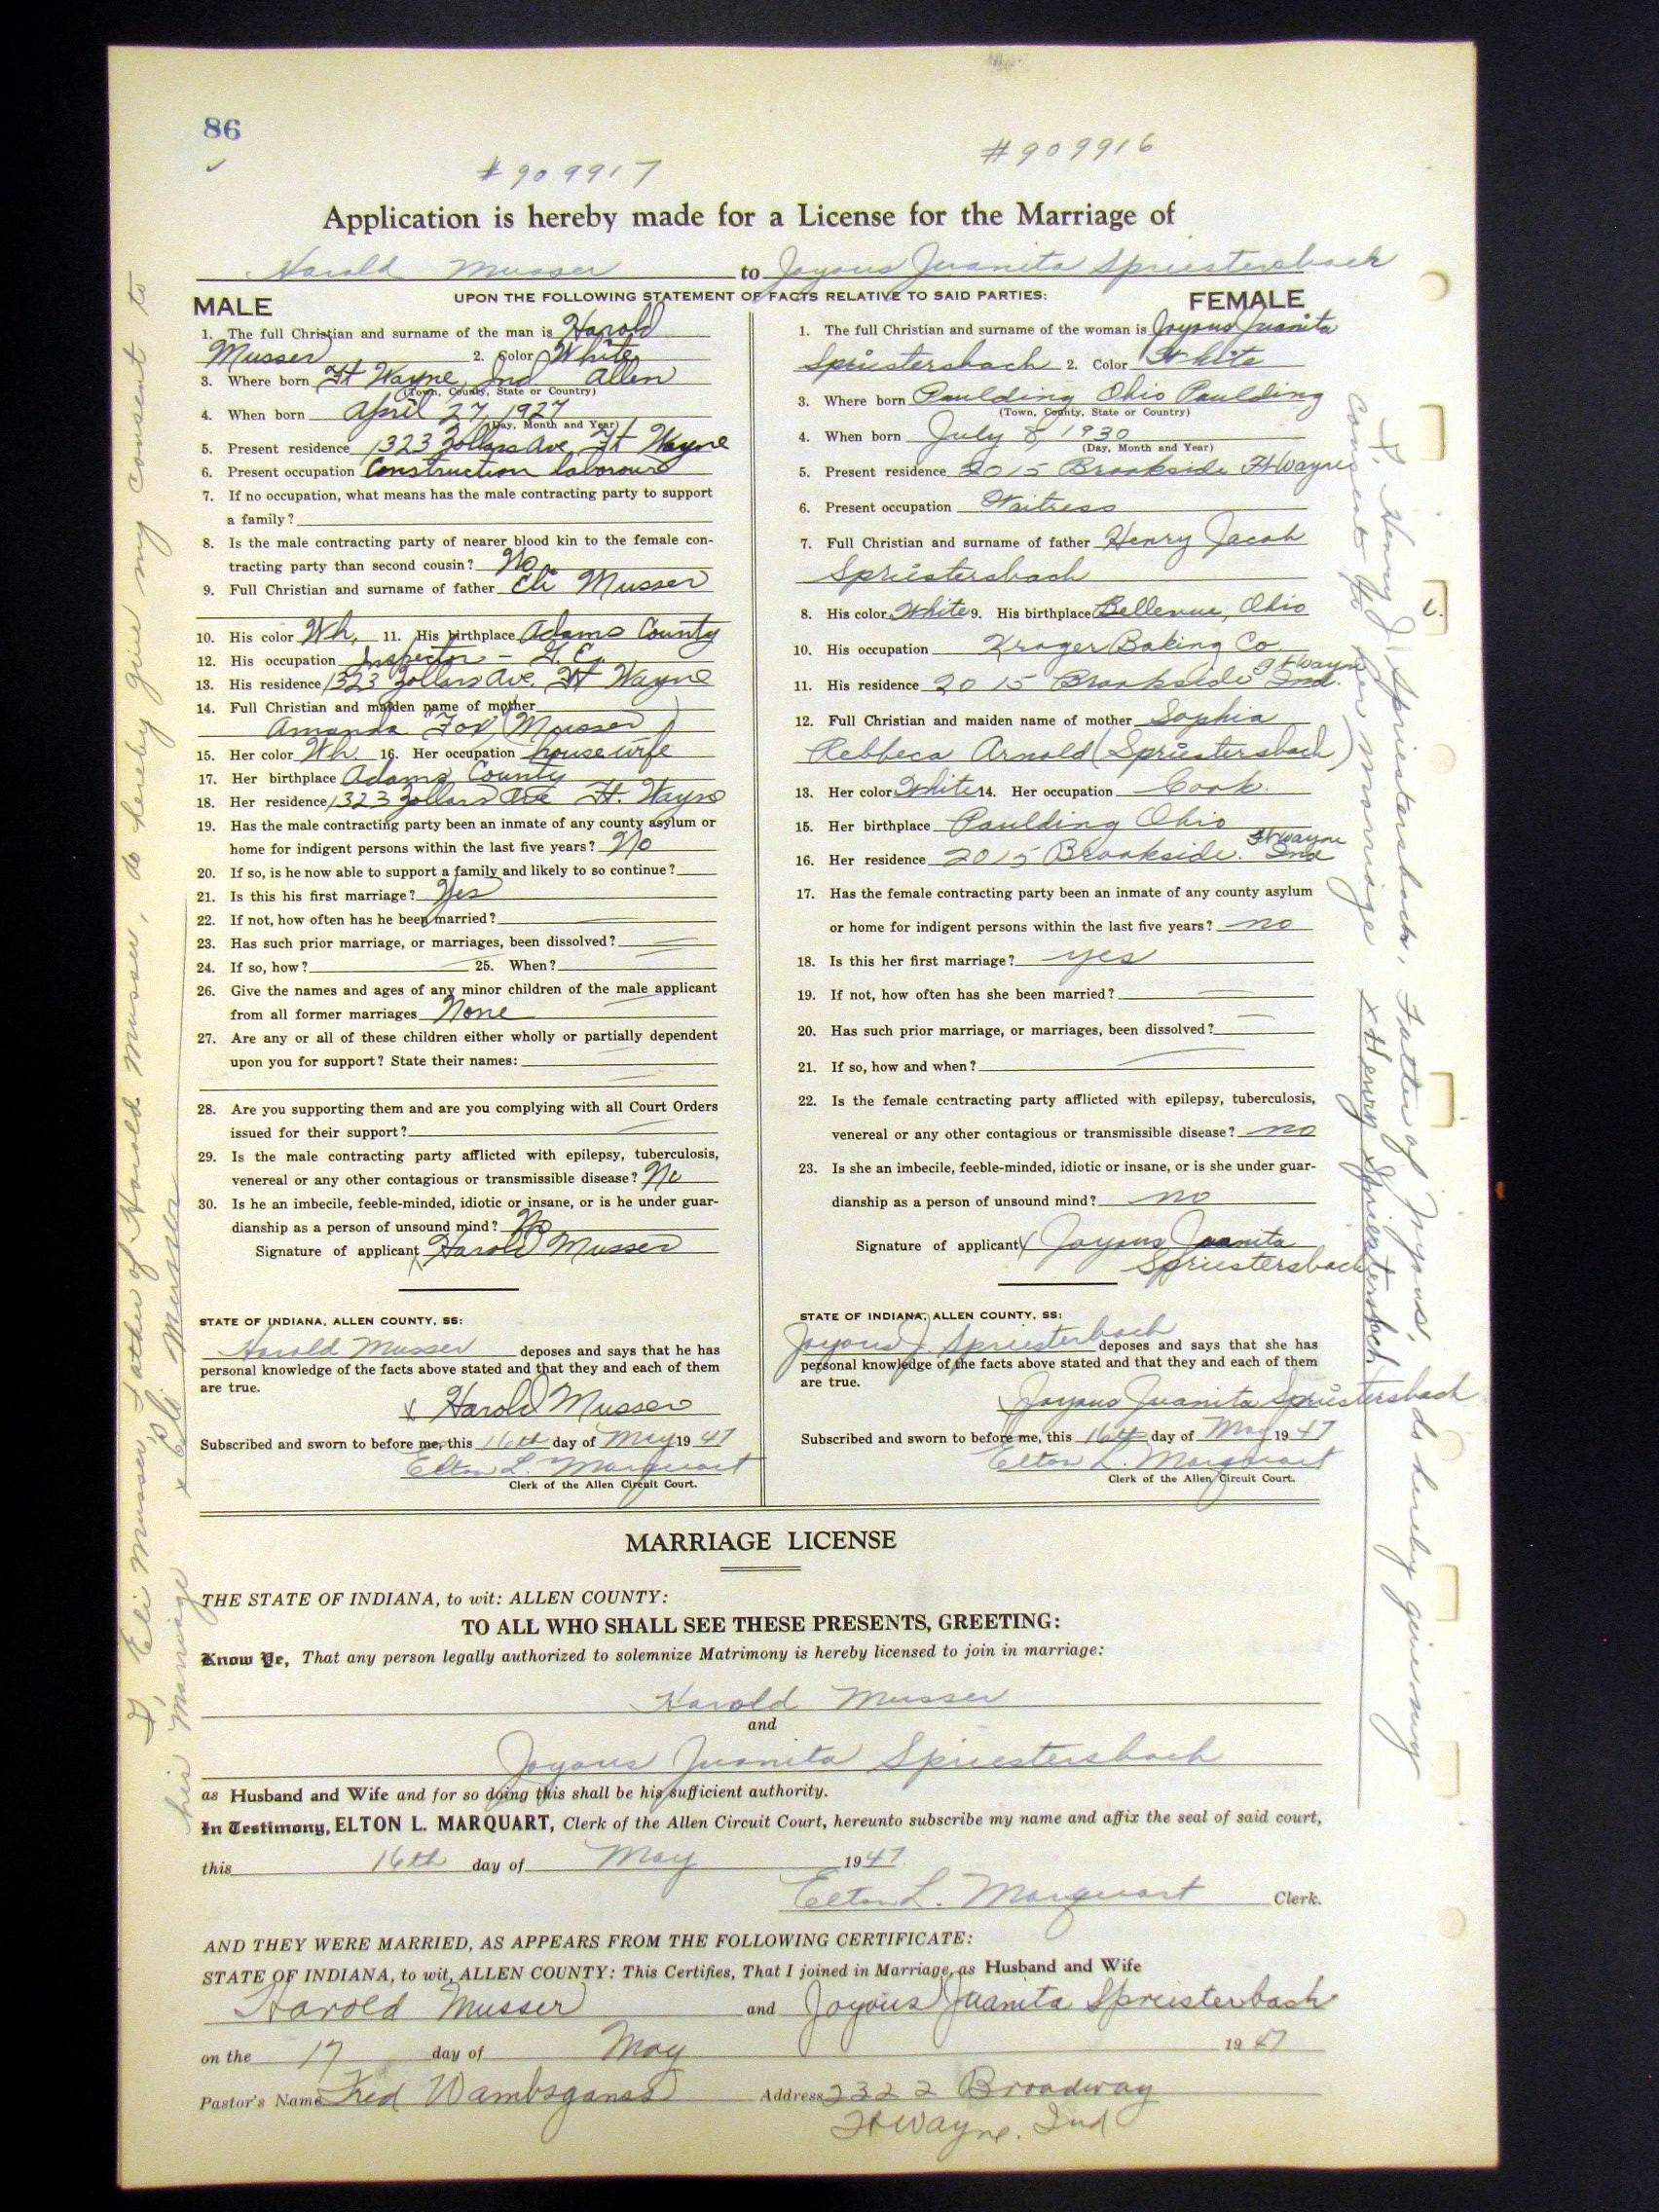 86
# 909917
# 909916
Application is hereby made for a License for the Marriage of
Harold Musser to Joyous Juanita Spriestersbach
UPON THE FOLLOWING STATEMENT OF FACTS RELATIVE TO SAID PARTIES:
MALE
1. The full Christian and surname of the man is Harold
Musser 2. Color White
3. Where born Ft Wayne, Ind Allen
(Town, County, State or Country)
4. When born April 27, 1927
(Day, Month and Year)
5. Present residence 1323 Zollars Ave, Ft Wayne
6. Present occupation Construction labourer
7. If no occupation, what means has the male contracting party to support
a family?
8. Is the male contracting party of nearer blood kin to the female con-
tracting party than second cousin? No
9. Full Christian and surname of father Eli Musser
10. His color Wh. 11. His birthplace Adams County
12. His occupation Inspector - G. E.
13. His residence 1323 Zollars Ave. Ft Wayne
14. Full Christian and maiden name of mother
Amanda Fox (Musser)
15. Her color Wh. 16. Her occupation housewife
17. Her birthplace Adams County
18. Her residence 1323 Zollars Ave Ft. Wayne
19. Has the male contracting party been an inmate of any county asylum or
home for indigent persons within the last five years? No
20. If so, is he now able to support a family and likely to so continue?
21. Is this his first marriage? Yes
22. If not, how often has he been married?
23. Has such prior marriage, or marriages, been dissolved?
24. If so, how? 25. When?
26. Give the names and ages of any minor children of the male applicant
from all former marriages None
27. Are any or all of these children either wholly or partially dependent
upon you for support? State their names:
28. Are you supporting them and are you complying with all Court Orders
issued for their support?
29. Is the male contracting party afflicted with epilepsy, tuberculosis,
venereal or any other contagious or transmissible disease? No
30. Is he an imbecile, feeble-minded, idiotic or insane, or is he under guar-
dianship as a person of unsound mind? No
Signature of applicant x Harold Musser
STATE OF INDIANA, ALLEN COUNTY, SS:
Harold Musser deposes and says that he has
personal knowledge of the facts above stated and that they and each of them
are true.
x Harold Musser
Subscribed and sworn to before me, this 16th day of May 1947
Elton L. Marquart
Clerk of the Allen Circuit Court.
FEMALE
1. The full Christian and surname of the woman is Joyous Juanita
Spriestersbach 2. Color White
3. Where born Paulding Ohio Paulding
(Town, County, State or Country)
4. When born July 8, 1930
(Day, Month and Year)
5. Present residence 2015 Brookside Ft Wayne
6. Present occupation Waitress
7. Full Christian and surname of father Henry Jacob
Spriestersbach
8. His color White 9. His birthplace Bellevue, Ohio
10. His occupation Kroger Baking Co
11. His residence 2015 Brookside Ft Wayne Ind.
12. Full Christian and maiden name of mother Sophia
Rebbeca Arnold (Spriestersbach)
13. Her color White 14. Her occupation Cook.
15. Her birthplace Paulding Ohio
16. Her residence 2015 Brookside. Ft Wayne Ind
17. Has the female contracting party been an inmate of any county asylum
or home for indigent persons within the last five years? no
18. Is this her first marriage? yes
19. If not, how often has she been married?
20. Has such prior marriage, or marriages, been dissolved?
21. If so, how and when?
22. Is the female contracting party afflicted with epilepsy, tuberculosis,
venereal or any other contagious or transmissible disease? no
23. Is she an imbecile, feeble-minded, idiotic or insane, or is she under guar-
dianship as a person of unsound mind? no
Signature of applicant x Joyous Juanita
Spriestersbach
STATE OF INDIANA, ALLEN COUNTY, SS:
Joyous J. Spriesterbach deposes and says that she has
personal knowledge of the facts above stated and that they and each of them
are true.
x Joyous Juanita Spriestersbach
Subscribed and sworn to before me, this 16th day of May 1947
Elton L. Marquart
Clerk of the Allen Circuit Court.
I, Eli Musser, Father of Harold Musser, do hereby give my consent to
his marriage
x Eli Musser
I, Henry J. Spriestersbach, Father of Joyous, do hereby give my
consent to her marriage
x Henry Spriestersbach
MARRIAGE LICENSE
THE STATE OF INDIANA, to wit: ALLEN COUNTY:
TO ALL WHO SHALL SEE THESE PRESENTS, GREETING:
Know Ye, That any person legally authorized to solemnize Matrimony is hereby licensed to join in marriage:
Harold Musser
and
Joyous Juanita Spriestersbach
as Husband and Wife and for so doing this shall be his sufficient authority.
In Testimony, ELTON L. MARQUART, Clerk of the Allen Circuit Court, hereunto subscribe my name and affix the seal of said court,
this 16th day of May 1947
Elton L. Marquart Clerk.
AND THEY WERE MARRIED, AS APPEARS FROM THE FOLLOWING CERTIFICATE:
STATE OF INDIANA, to wit, ALLEN COUNTY: This Certifies, That I joined in Marriage, as Husband and Wife
Harold Musser and Joyous Juanita Spriesterbach
on the 17 day of May 1947
Pastor's Name Fred Wambsganss Address 2322 Broadway
Ft Wayne. Ind